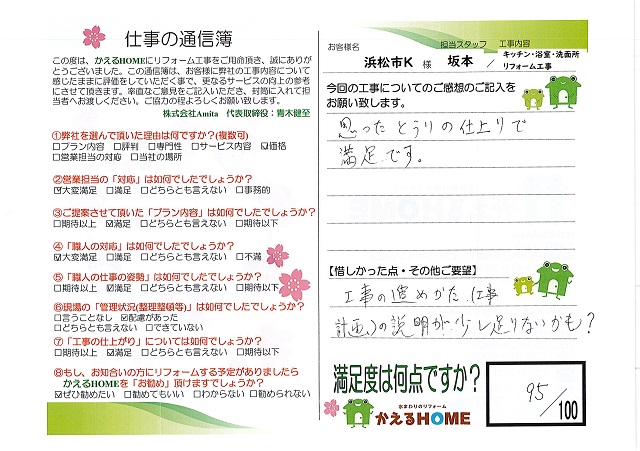 仕事の通信簿
この度は、かえるHOMEにリフォーム工事をご用命頂き、誠にありが
とうございました。この通信簿は、お客様に弊社の工事内容について
感じたままに評価をしていただく事で、更なるサービスの向上の参考
にさせて頂きます。率直なご意見をご記入いただき、封筒に入れて担
当者へお渡しください。ご協力の程よろしくお願い致します。
株式会社Amita 代表取締役：青木健至
①弊社を選んで頂いた理由は何ですか？(複数可)
□プラン内容 □評判 □専門性 □サービス内容 ☑価格
□営業担当の対応 □当社の場所
②営業担当の「対応」は如何でしたでしょうか？
☑大変満足 □満足 □どちらとも言えない □事務的
③ご提案させて頂いた「プラン内容」は如何でしたでしょうか？
□期待以上 ☑満足 □どちらとも言えない □期待以下
④「職人の対応」は如何でしたでしょうか？
☑大変満足 □満足 □どちらとも言えない □不満
⑤「職人の仕事の姿勢」は如何でしたでしょうか？
□期待以上 ☑満足 □どちらとも言えない □期待以下
⑥現場の「管理状況(整理整頓等)」は如何でしたでしょうか？
□言うことなし ☑配慮があった
□どちらとも言えない □できていない
⑦「工事の仕上がり」については如何でしたでしょうか？
□期待以上 ☑満足 □どちらとも言えない □期待以下
⑧もし、お知合いの方にリフォームする予定がありましたら
かえるHOMEを「お勧め」頂けますでしょうか？
☑ぜひ勧めたい □勧めてもいい □わからない □勧められない
お客様名 担当スタッフ 工事内容
浜松市K 様 坂本 キッチン・浴室・洗面所
リフォーム工事
今回の工事についてのご感想のご記入を
お願い致します。
思ったとうりの仕上りで
満足です。
【惜しかった点・その他ご要望】
工事の進めかた（工事
計画）の説明が少し足りないかも？
満足度は何点ですか？
95/100
水まわりのリフォーム
かえるHOME